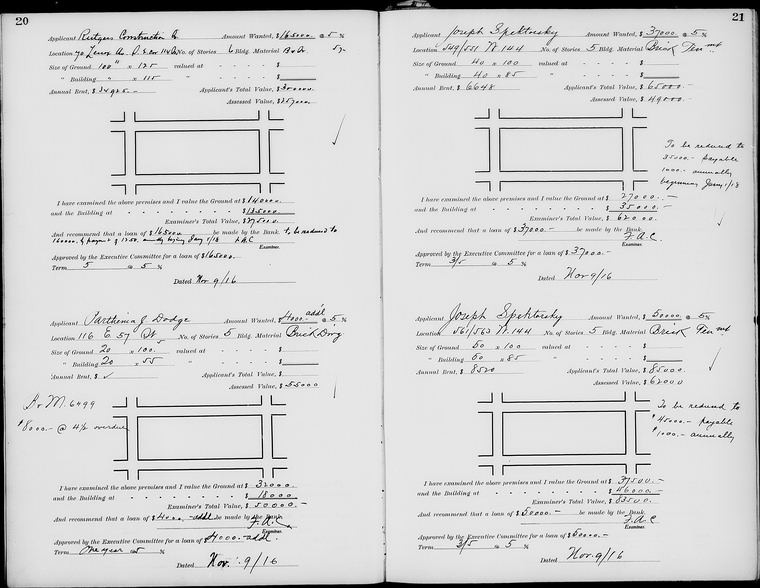 20
Applicant Rutgers Construction Co Amount Wanted, $165000. @ 5 %
Location 70 Lenox Av. S.E. cor 114 No. of Stories 6 Bldg. Material
Size of Ground 100" x 125 valued at - - - - $
" Building " x 115 " - - - - $
Annual Rent, $ 34925.- Applicant's Total Value, $300000.
Assessed Value, $
I have examined the above premises and I value the Ground at $140000.
and the Building at - - - - - - - - $135000
Examiner's Total Value, $275000.
And recommend that a loan of $165000 be made by the Bank. to be reduced to
160000. by payment of 1250. beginning Jany 1/18 F.A.C
Examiner.
Approved by the Executive Committee for a loan of $165000.
Term 5 @ 5 %
Dated Nov 9/16
Applicant Parthenia J Dodge Amount Wanted, $4000. addl @ 5 %
Location 116 E. 57 St No. of Stories 5 Bldg. Material Brick Dwg
Size of Ground 20 x 100.5 valued at - - - - $
" Building 20 x 55 " - - - - $
Annual Rent, $ ✓ Applicant's Total Value, $
Assessed Value, $55000
A/M. 6499
$8000.- @ 4½ overdue
I have examined the above premises and I value the Ground at $ 32000.
and the Building at - - - - - - - - $ 18000
Examiner's Total Value, $ 50000.-
And recommend that a loan of $4000. addl. be made by the Bank.
F.A.C
Examiner.
Approved by the Executive Committee for a loan of $4000.- addl.
Term One year @ 5 %
Dated Nov. 9/16
21
Applicant Joseph Spektorsky Amount Wanted, $37000 @ 5 %
Location 549/551 W. 144 No. of Stories 5 Bldg. Material Brick Ten mt
Size of Ground 40 x 100 valued at - - - - $
" Building 40 x 85 " - - - - $
Annual Rent, $ 6648 Applicant's Total Value, $ 65000.-
Assessed Value, $ 49000.-
To be reduced to
35000.- payable
1000.- annually
beginning Jany 1/18
I have examined the above premises and I value the Ground at $ 27000.-
and the Building at - - - - - - - - $ 35000.-
Examiner's Total Value, $ 62000
And recommend that a loan of $37000.- be made by the Bank.
F.A.C.
Examiner.
Approved by the Executive Committee for a loan of $37000.-
Term 3/5 @ 5 %
Dated Nov 9/16
Applicant Joseph Spektorsky Amount Wanted, $ 50000. @ 5%
Location 561/563 W. 144 No. of Stories 5 Bldg. Material Brick Ten mt
Size of Ground 50 x 100 valued at - - - - $
" Building 50 x 85 " - - - - $
Annual Rent, $ 8520 Applicant's Total Value, $ 85000.-
Assessed Value, $ 62000
To be reduced to
$45000.- payable
$1000.- annually
I have examined the above premises and I value the Ground at $ 37500.-
and the Building at - - - - - - - - $ 46000.-
Examiner's Total Value, $ 83500.-
And recommend that a loan of $50000.- be made by the Bank.
F.A.C
Examiner.
Approved by the Executive Committee for a loan of $50000.-
Term 3/5 @ 5 %
Dated Nov. 9/16